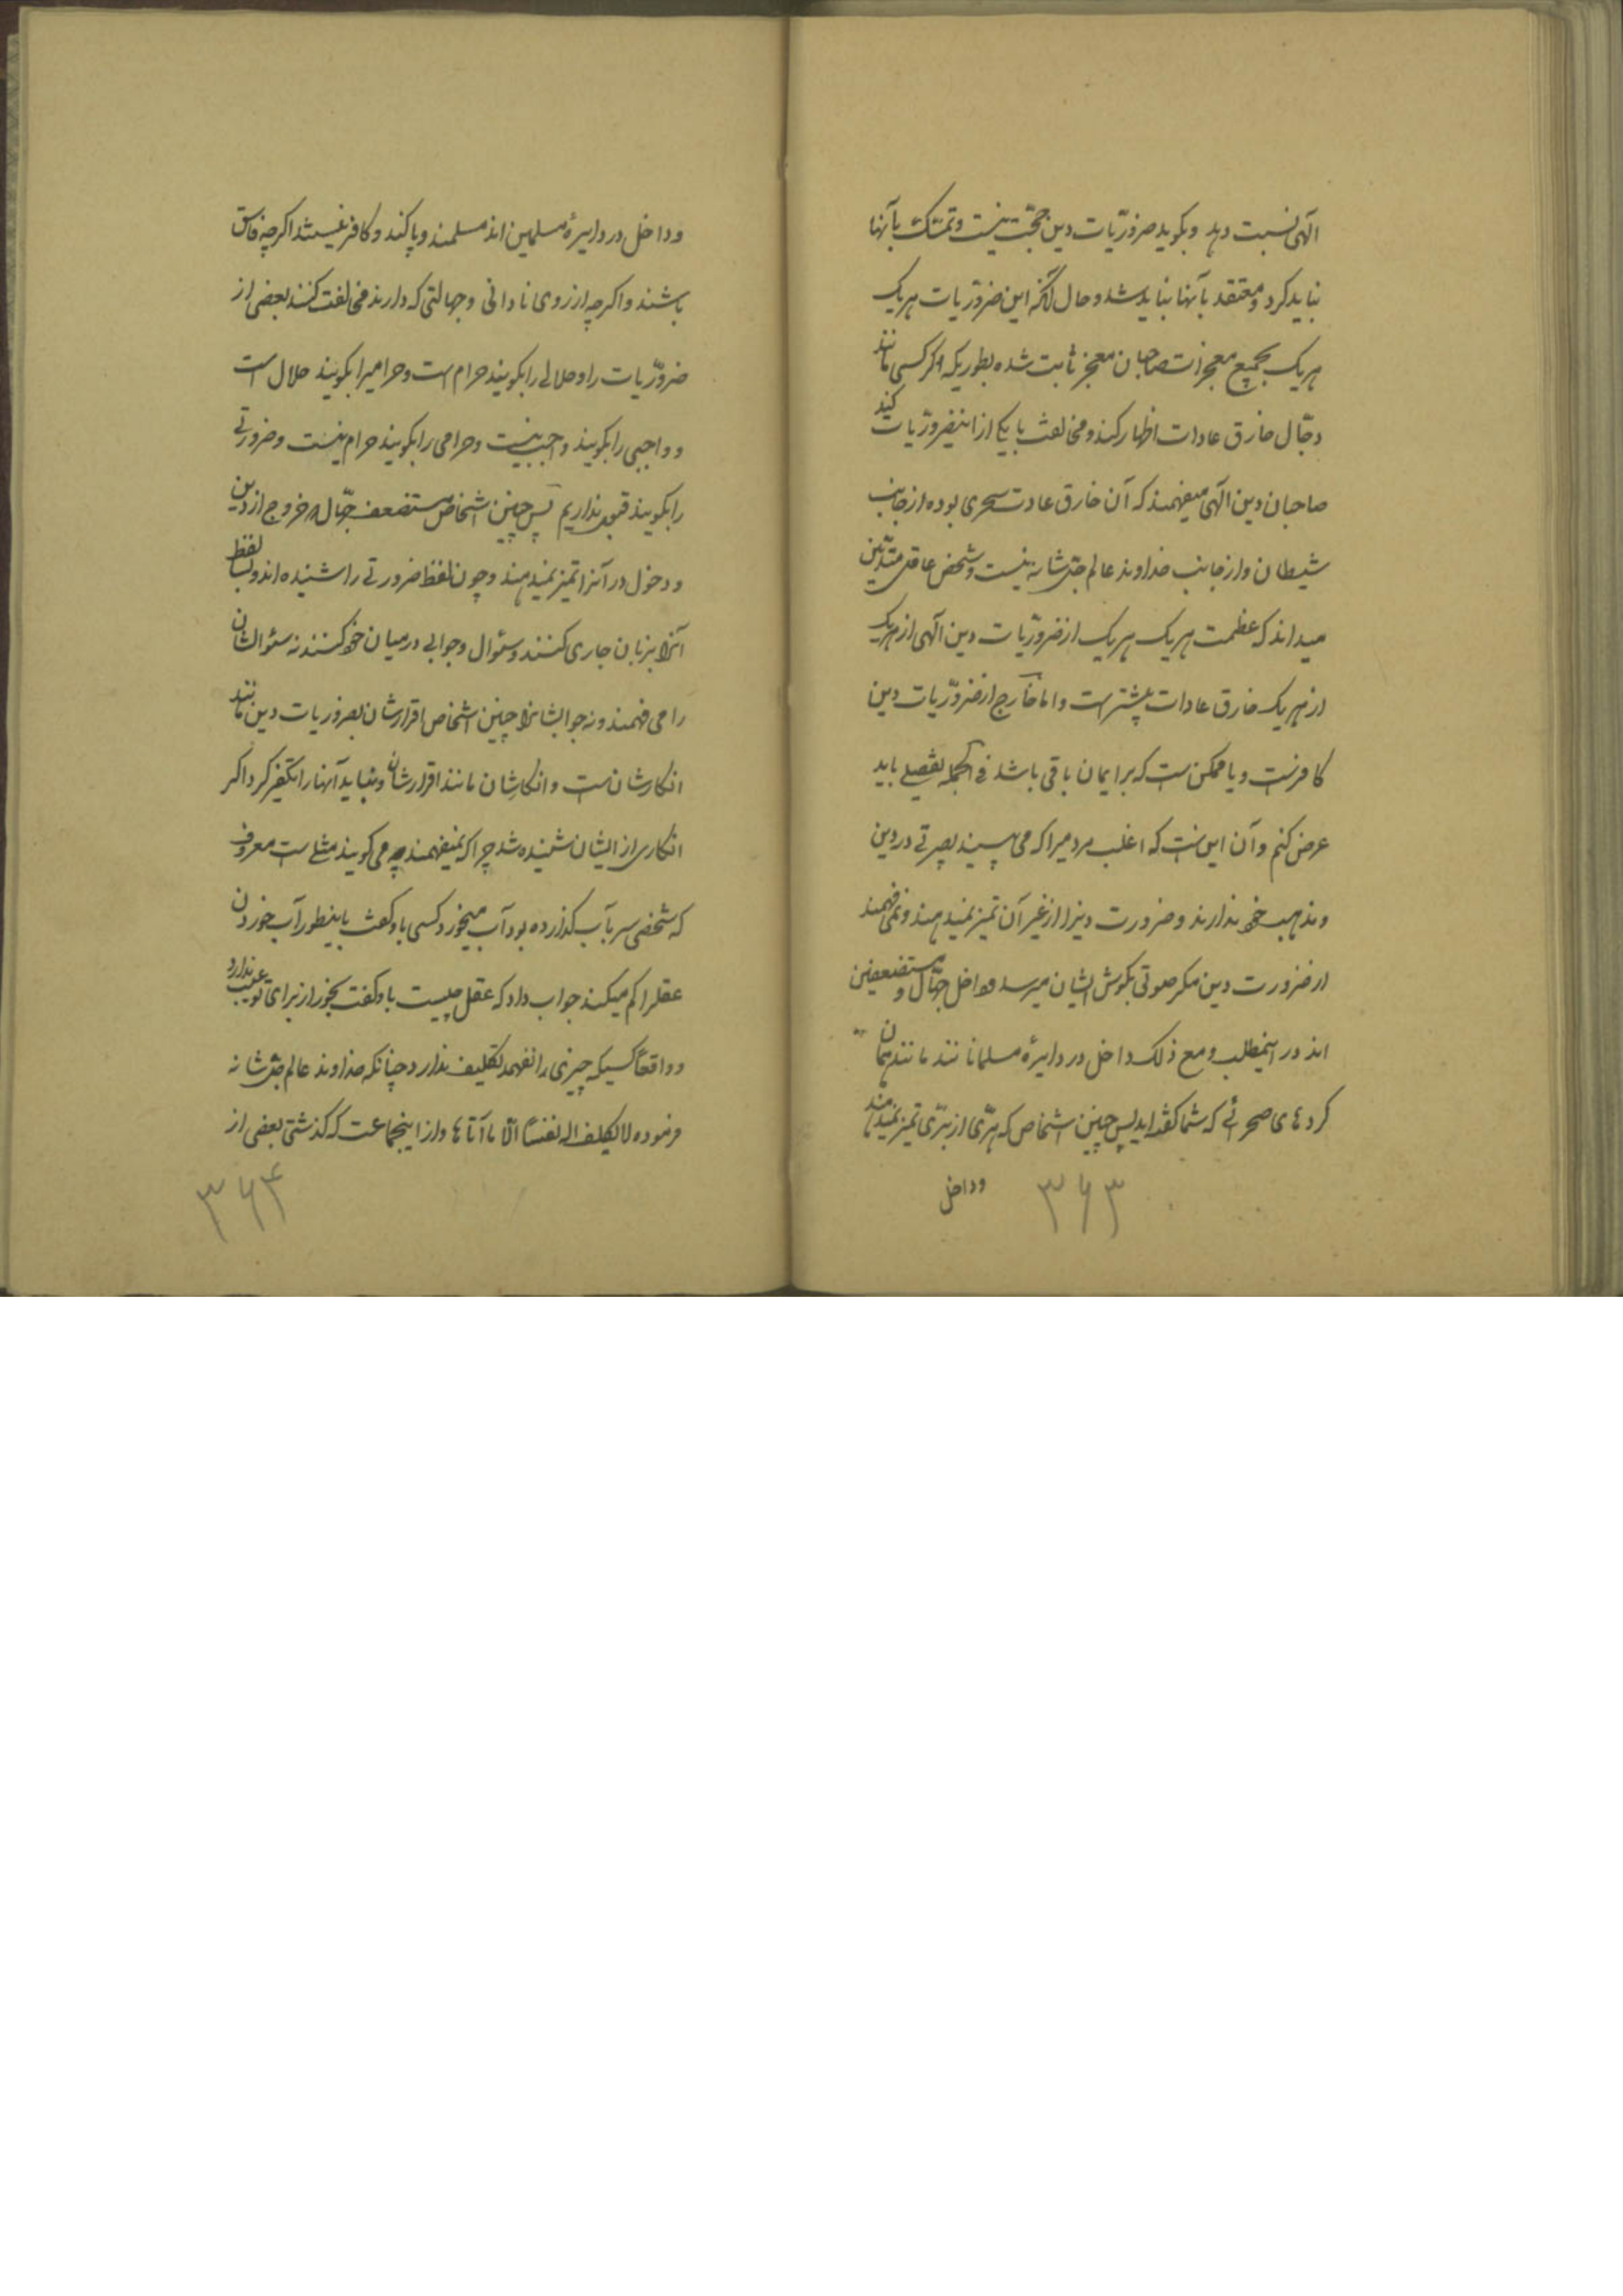 الهی نسبت دهد و بگوید ضروریّات دین حجّت نیست و تمسّک بآنها
نباید کرد و معتقد بآنها نباید شد و حال آنکه این ضروریات هر یک
هر یک بجمیع معجزات صاحبان معجز ثابت شده بطوریکه اگر کسی مانند
دجّال خارق عادات اظهار کند و مخالفت با یکی از این ضروریّات کند
صاحبان دین الهی میفهمند که آن خارق عادت سحری بوده از جانب
شیطان و از جانب خداوند عالم جلّ شانه نیست و شخص عاقل متدیّن
میداند که عظمت هر یک هر یک از ضروریّات دین الهی از هر یک
از هر یک خارق عادات بیشتر است و اما خارج از ضروریّات دین
کافر است و یا ممکن است که بر ایمان باقی باشد فی الجمله تفصیلی باید
عرض کنم و آن این است که اغلب مردمیرا که می بینید بصیرتی در دین
و مذهب خود ندارند و ضرورت دینرا از غیر آن تمیز نمیدهند و نمی فهمند
از ضرورت دین مگر صوتی بگوش ایشان میرسد و داخل جهّال و مستضعفین
اند در اینمطلب و مع ذلک داخل در دایرهٔ مسلمانانند مانند همان
کردهای صحرائی که شما گفته اید پس چنین اشخاص که هرّی از برّی تمیز نمیدهند
و داخل
۳۶۳
و داخل در دایرهٔ مسلمین اند مسلمند و پاکند و کافر نیستند اگرچه فاسق
باشند و اگرچه از روی نادانی و جهالتی که دارند مخالفت کنند بعضی از
ضروریّات را و حلالی را بگویند حرام است و حرامیرا بگویند حلال است
و واجبی را بگویند واجب نیست و حرامی را بگویند حرام نیست و ضرورتی
را بگویند قبول نداریم پس چنین اشخاص مستضعف جهّال خروج از دین
و دخول در آنرا تمیز نمیدهند و چون لفظ ضرورتی را شنیده اند و لفظ
آنرا بزبان جاری کنند و سئوال و جوابی در میان خود کنند نه سئوالشان
را می فهمند و نه جوابشانرا چنین اشخاص اقرارشان بضروریات دین مانند
انکارشان است و انکارشان مانند اقرارشان و نباید آنها را تکفیر کرد اگر
انکاری از ایشان شنیده شد چرا که نمیفهمند چه می گویند مثلی است معروف
که شخصی سر بآب گذارده بود آب میخورد کسی باو گفت باینطور آب خوردن
عقلرا کم میکند جواب داد که عقل چیست باو گفت بخور از برای تو عیب ندارد
و واقعاً کسیکه چیزی را نفهمد تکلیف ندارد چنانکه خداوند عالم جلّ شانه
فرموده لا یکلف الله نفساً الّا ما آتاها و از اینجماعت که گذشتی بعضی از
۳۶۴